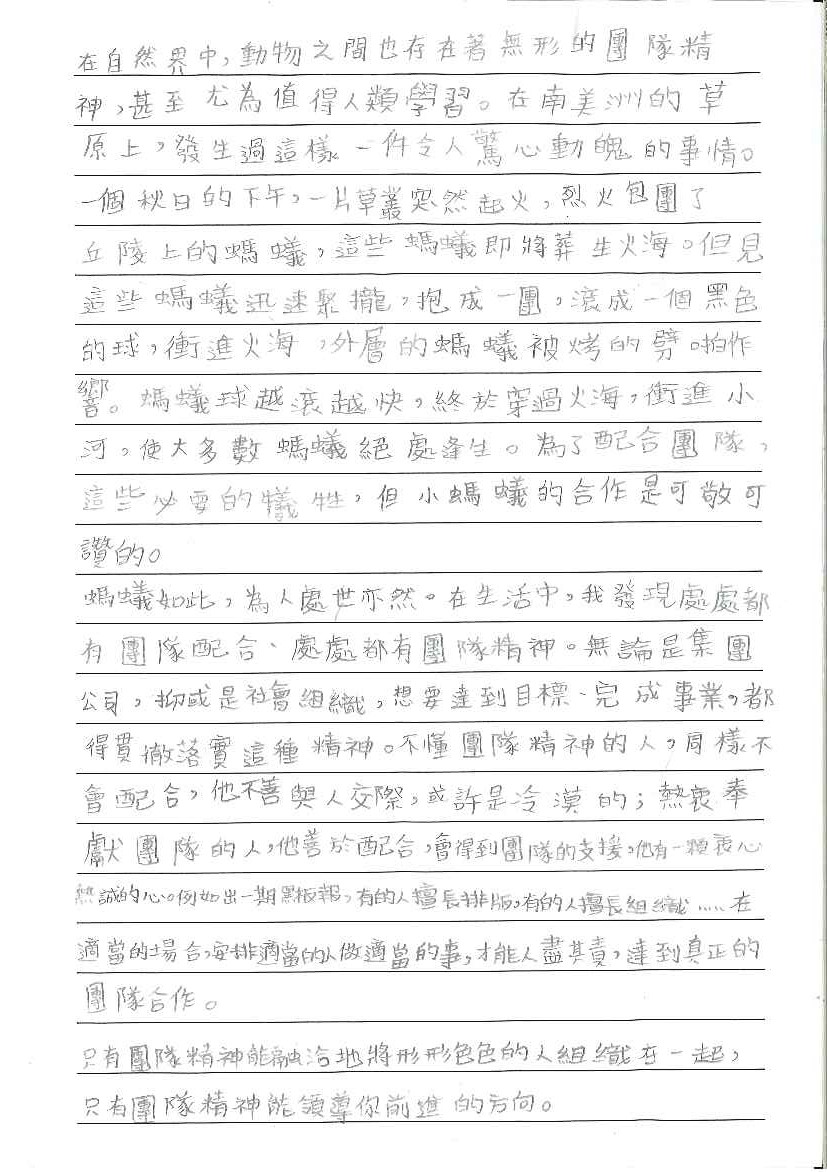 在自然界中,動物之間也存在著無形的團隊精
神,甚至尤為值得人類學習。在南美洲的草
原上,發生過這樣一件令人驚心動魄的事情。
一個秋日的下午,一片草叢突然起火,烈火包團了
丘陵上的螞蟻,這些螞蟻即將葬生火海。但見
這些螞蟻迅速聚攏,抱成一團,滾成一個黑色
的球,衝進火海,外層的螞蟻被烤的劈啪作
響。螞蟻球越滾越快,終於穿過火海,衝進小
河,使大多數螞蟻絕處逢生。為了配合團隊,
這些必要的犧牲,但小螞蟻的合作是可敬可
讚的。
螞蟻如此,為人處世亦然。在生活中,我發現處處都
有團隊配合、處處都有團隊精神。無論是集團
公司,抑或是社會組織,想要達到目標、完成事業,都
得貫徹落實這種精神。不懂團隊精神的人,同樣不
會配合,他不善與人交際,或許是冷漠的;熱衷奉
獻團隊的人,他善於配合,會得到團隊的支援,他有一顆衷心
熱誠的心。例如出一期黑板報,有的人擅長排版,有的人擅長組織……在
適當的場合,安排適當的人做適當的事,才能人盡其責,達到真正的
團隊合作。
只有團隊精神能融洽地將形形色色的人組織在一起,
只有團隊精神能領導你前進的方向。